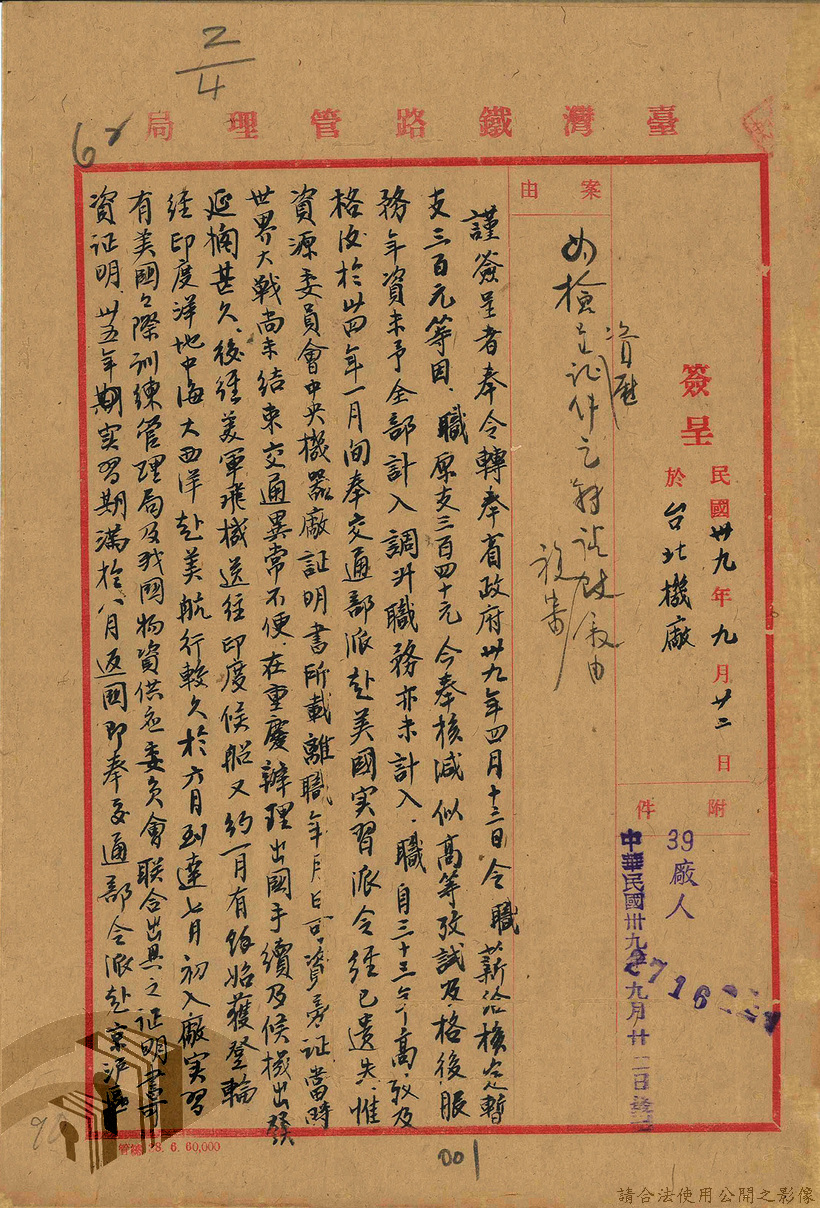 2/4
臺灣鐵路管理局
簽呈
民國卅九年九月廿二日
於台北機廠
附件
39廠人
中華民國卅九年九月廿二日
案由
為檢呈資歷證件之
謹簽呈者奉令轉奉省政府卅九年四月十三日令職薪給核定暫
支三百元等因．職原支三百四十元今奉核減似高等攷試及格後服
務年資未予全部計入調升職務亦未計入．職自三十三年高攷及
格後於卅四年一月間奉交通部派赴美國實習派令經已遺失．惟
資源委員會中央機器廠証明書所載離職年月日可資旁証當時
世界大戰尚未結束交通異常不便．在重慶辦理出國手續及候機出發
延擱甚久．後經美軍飛機送往印度候船又約一月有餘始獲登輪
經印度洋地中海大西洋赴美航行較久於六月到達七月初入廠實習
有美國國際訓練管理局及我國物資供應委員會聯合出具之証明書可
資証明．卅五年期實習期滿於八月返國即奉交通部令派赴京滬區
管總 8. 6. 60,000
001
請合法使用公開之影像